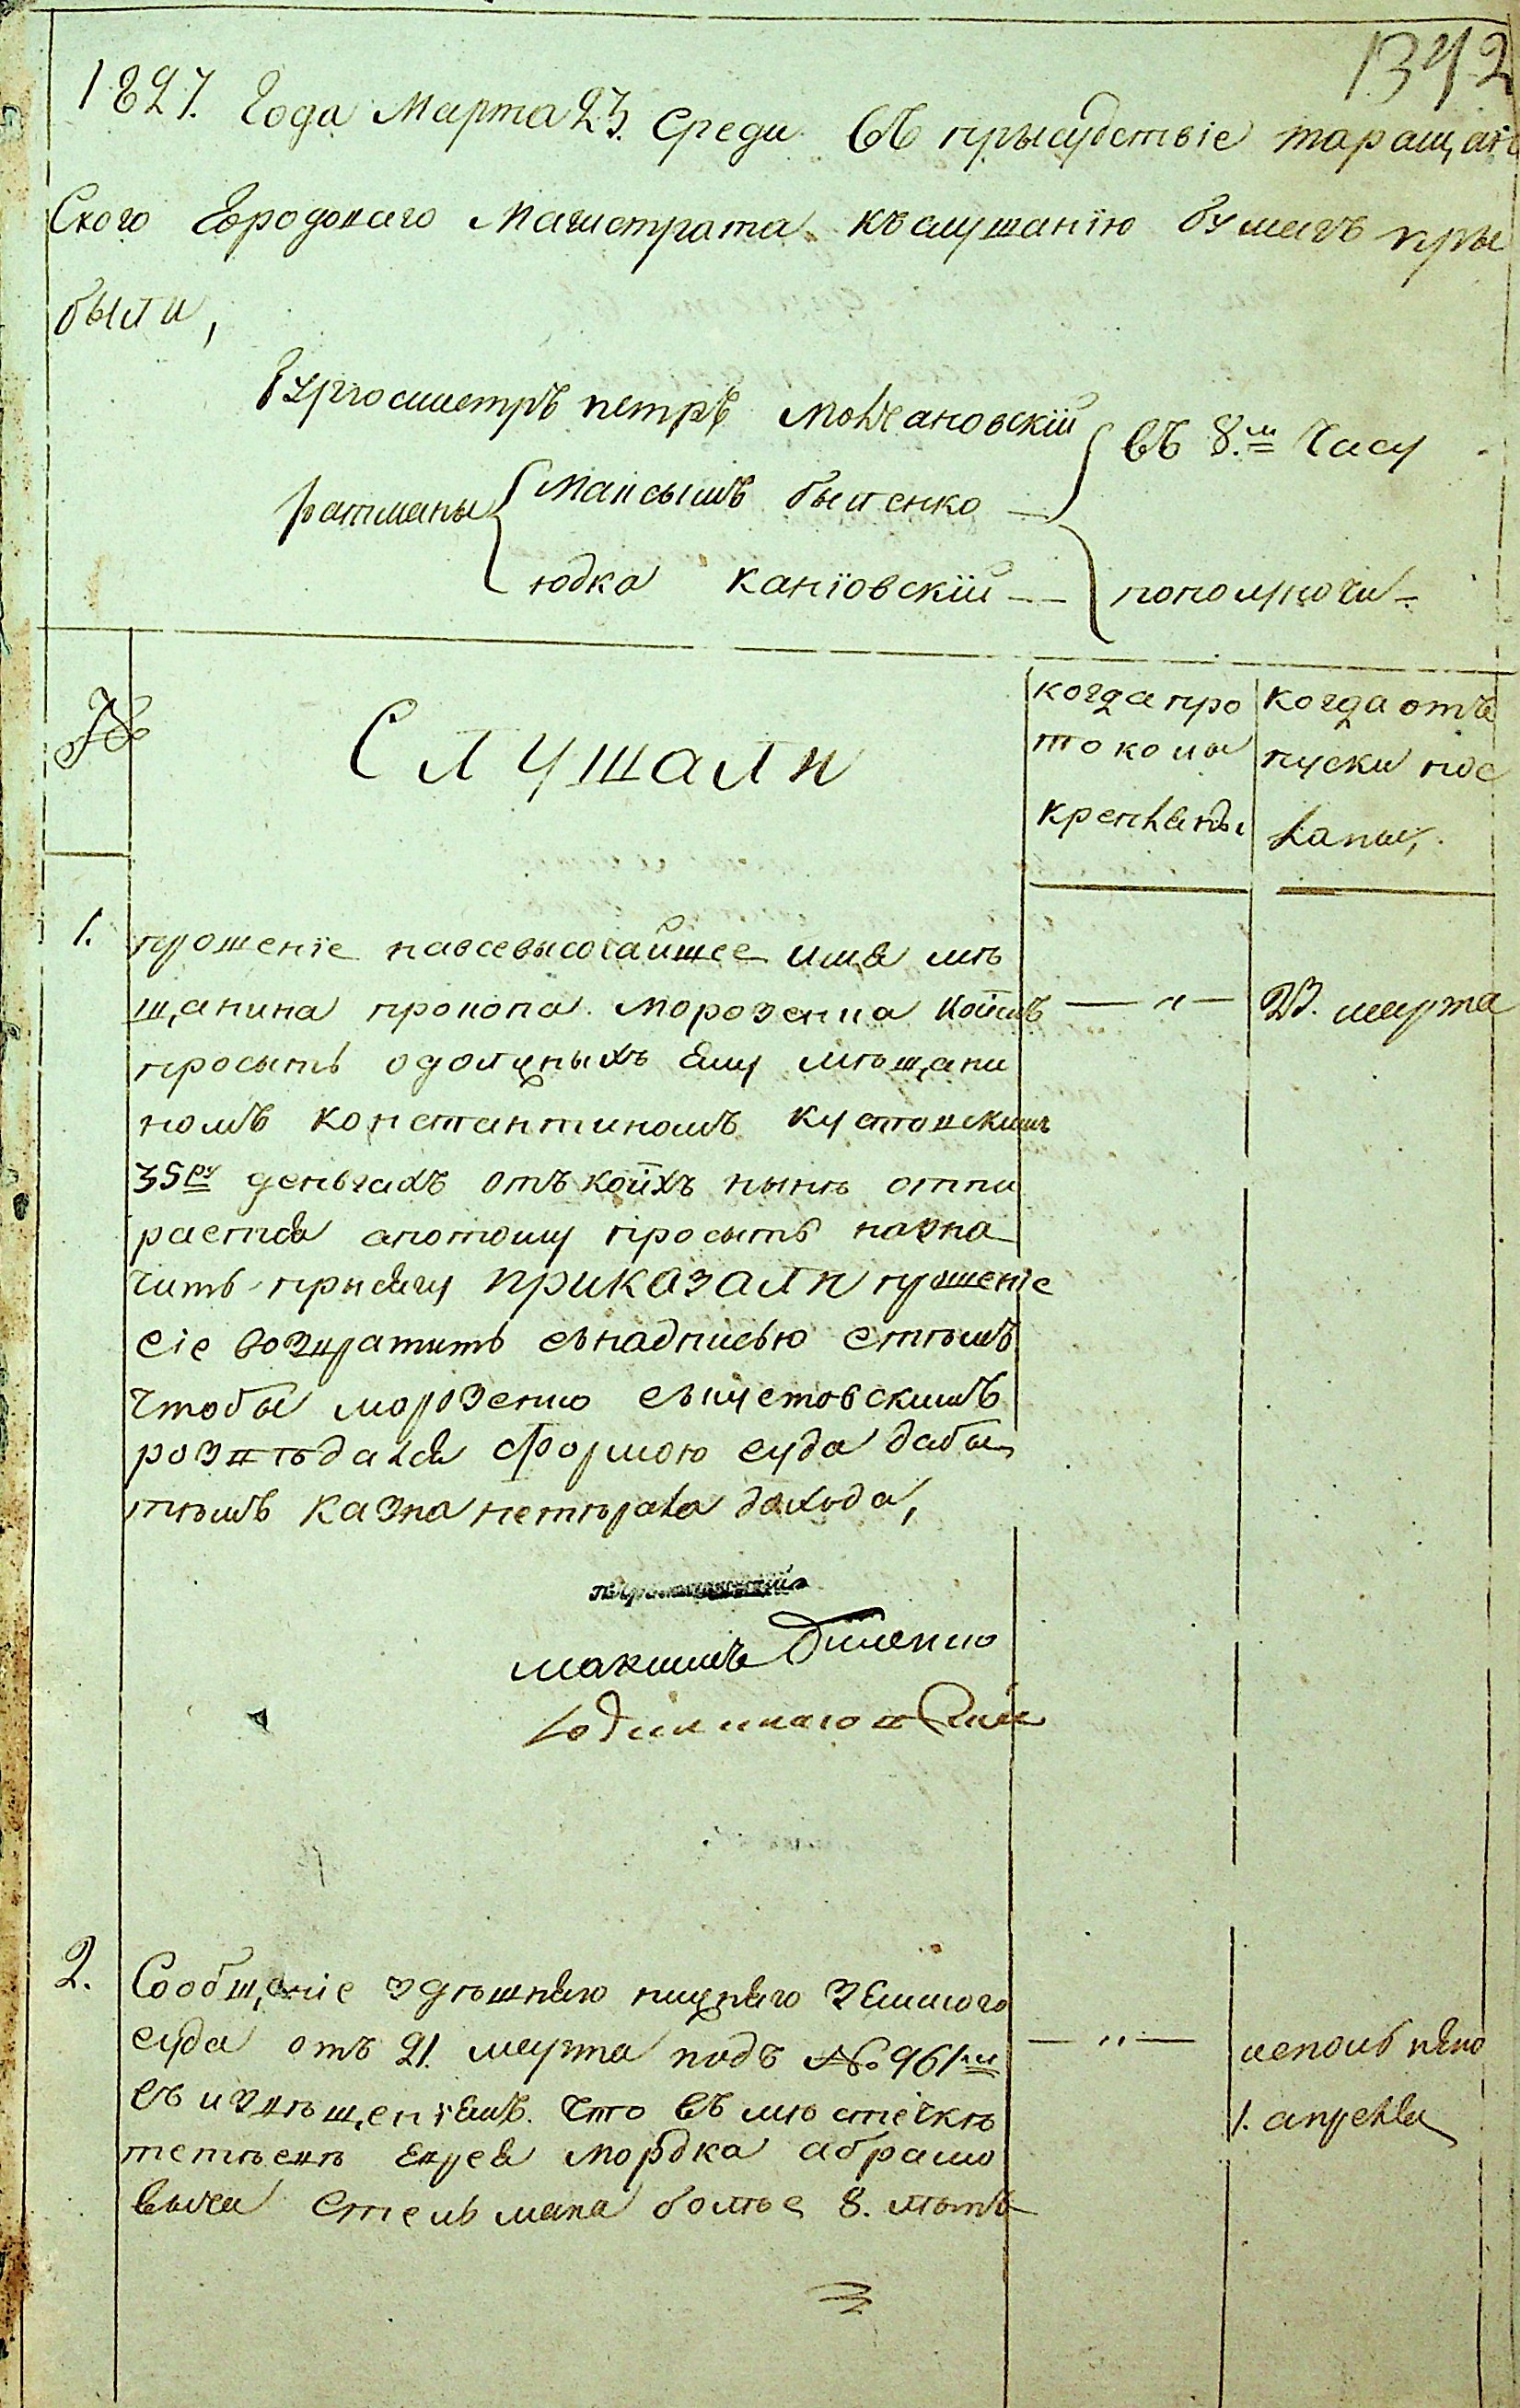 1342
1827. Года Марта 23. Среди Въ прысудствіе таращан
ского Городоваго Магистрата къ слушанію бумагъ пры
были,
Бургомистръ петръ Молчановскій
въ 8.м часу
ратманы Максымъ быленко
юдка каніовскій
пополуночи
№
Слушали
когда про
токолы
крепляны
когда отъ
пуски пос
ланы,
1.
прошеніе навсевысочайшее имя мѣ
щанина прокопа морозенка коимъ
просыть одолжныхъ ему мѣщани
номъ константиномъ кустовскимъ
35ру деньгахъ отъ коихъ нынѣ отпи
рается апотому просыть назна
чить прысягу приказали прошеніе
сіе возвратить снадписью стѣмъ
чтобы морозенко скустовскимъ
розвѣдался формою суда дабы
тѣмъ казна нетѣряла дохода,
23. марта
максимъ Биленко
2.
Сообщеніе здѣшняго нижняго земского
суда отъ 21. марта подъ № 961м
съ извѣщеніемъ. что въ мѣстечкѣ
тетѣевѣ еврея мордка абрамо
выча стельмаха болѣе 8. лѣтъ
исполънено
1. апреля